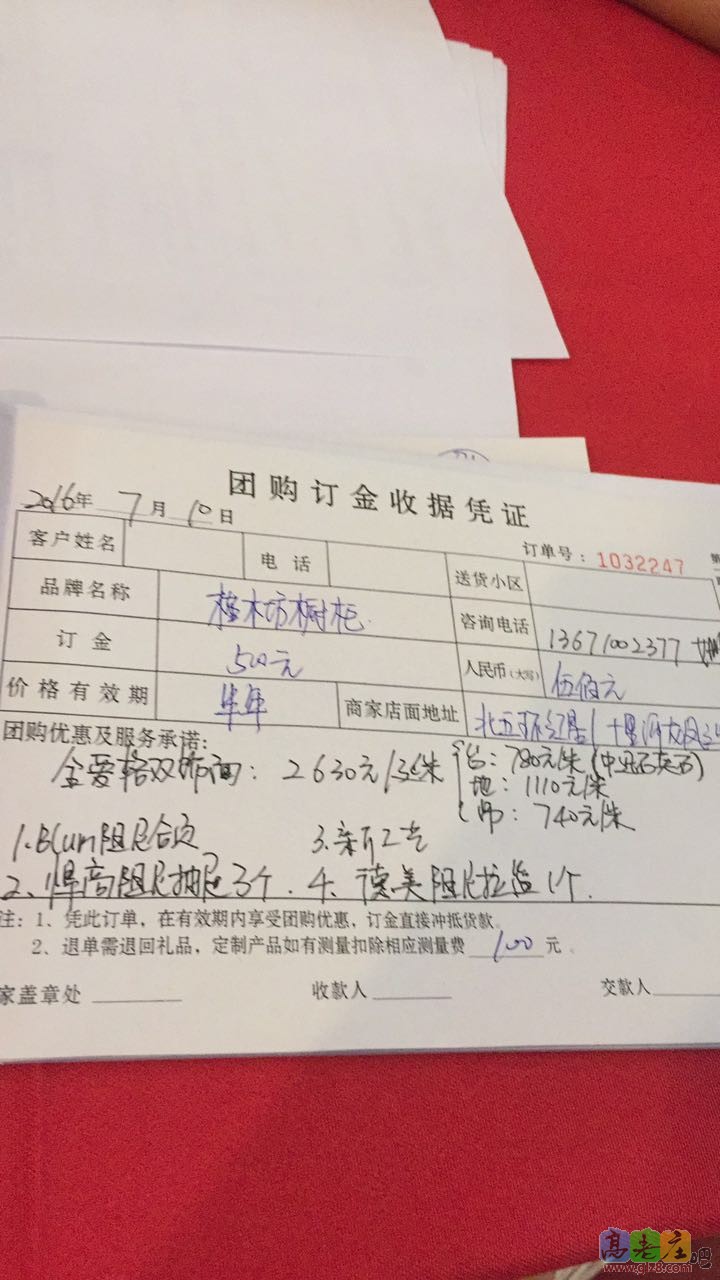 团购订金收据凭证
2016年 7月 10日
订单号：1032247
客户姓名 电话 送货小区
品牌名称 橱柜 咨询电话 13671002377
订金 500元 人民币(大写) 伍佰元
价格有效期 半年 商家店面地址 北五环红星
团购优惠及服务承诺：
金爱格双饰面：2630元/延米 台：780元/米(中迅石英石)
地：1110元/米
吊：740元/米
1.Blum阻尼合页 3.新工艺
2、悍高阻尼抽屉3个. 4、德美阻尼拉篮1个.
注：1、凭此订单，在有效期内享受团购优惠，订金直接冲抵货款。
2、退单需退回礼品，定制产品如有测量扣除相应测量费 100 元。
家盖章处 收款人 交款人
高老庄吧
www.glz8.com